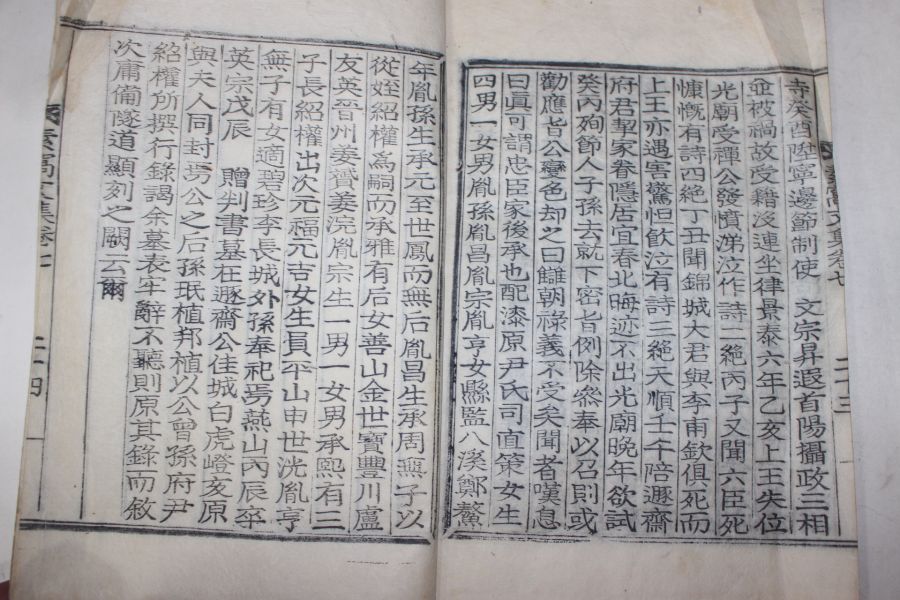 寺癸酉陞寧邊節制使　文宗昇遐首陽攝政三相
並被禍故受籍沒連坐律景泰六年乙亥上王失位
光廟受禪公發憤涕泣作詩二絶丙子又聞六臣死
慷慨有詩四絶丁丑聞錦城大君與李甫欽俱死而
上王亦遇害驚怛飮泣有詩三絶天順壬午陪遯齋
府君挈家眷隱居宜春北晦迹不出光廟晩年欲試
癸丙殉節人子孫去就下密旨例除叅奉以召則或
勸應旨公變色却之曰讎朝祿義不受矣聞者嘆息
曰眞可謂忠臣家後承也配漆原尹氏司直策女生
四男一女男胤孫胤昌胤宗胤亨女縣監八溪鄭鰲
年胤孫生承元至世鳳而無后胤昌生承周無子以
從姪紹權爲嗣而承雅有后女善山金世寶豐川盧
友英晉州姜贇姜浣胤宗生一男一女男承熙有三
子長紹權出次元福元吉女生員平山申世洸胤亨
無子有女適碧珍李長城外孫奉祀焉燕山丙辰卒
英宗戊辰　贈判書墓在遯齋公佳城白虎嶝亥原
與夫人同封焉公之后孫珉植邦植以公曾孫府尹
紹權所撰行錄謁余墓表牢辭不聽則原其錄而敘
次庸備隧道顯刻之闕云爾
素窩文集卷七
二十四
文集卷七
二十三